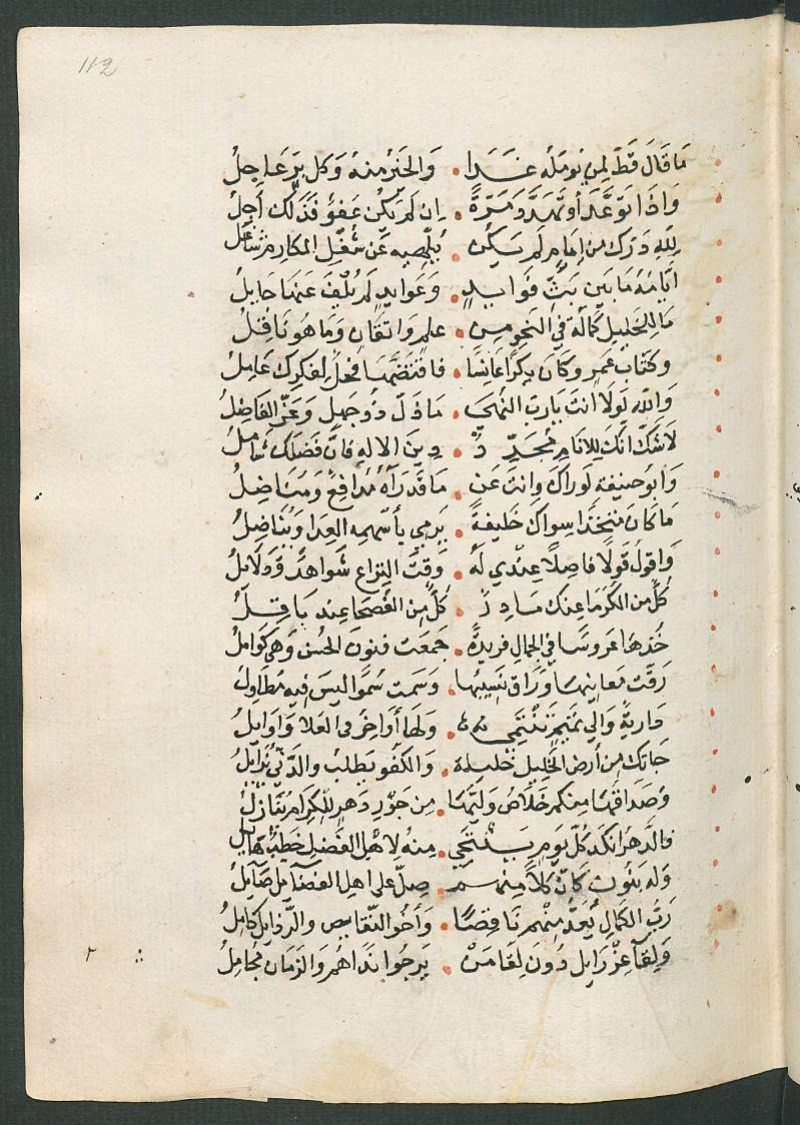 112
ما قال قط لمن يومله غدا . والخير منه وكل بر عاجل
واذا توعد أو تهدد مرة . ان لم يكن عفو فذلك أجل
لله درك من امام لم يكن . يلهيه عن شغل المكارم شاغل
ايامه ما بين بث فوايد . وعوايد لم يلف عنها حايل
ما للخليل كماله في النحو من . علم واتقان وما هو ناقل
وكتاب عمرو كان بكرا عانسا . فافتضها فحل لفكرك عامل
والله لولا انت يا رب النهى . ما ذل ذو جهل وعز الفاضل
لا شك انك للانام مجدد . دين الاله فان فضلك شامل
وابو حنيفة لو راك وانت عن . ما قد رآه مدافع ومناضل
ما كان متخذا سواك خليفة . يرمي بأسهمه العدا ويناضل
واقول قولا فاصلا عندي له . وقت النزاع شواهد ودلايل
كل من الكرما عندك مادر . كل من الفصحا عندك باقل
خذها عروسا في الجمال فريدة . جمعت فنون الحسن وهي كوامل
رقت معانيها وراق نسيبها . وسمت سموا ليس فيه مطاول
دارية والى تميم تنتمي . ولها أواخر في العلا واوايل
جاتك من أرض الخليل خليلة . والكفو يطلب والدني يزايل
وصداقها منكم خلاص وليها . من جور دهر للكرام ينازل
فالدهر انكد كل يوم ينتحي . منه لاهل الفضل خطب هايل
وله بنون كان كلا منهم . صل على اهل الفضايل صايل
رب الكمال يعد منهم ناقصا . وأخو النقايص والرذايل كامل
ولقآ عزرايل دون لقا من . يرجوا نداهم والزمان مجامل